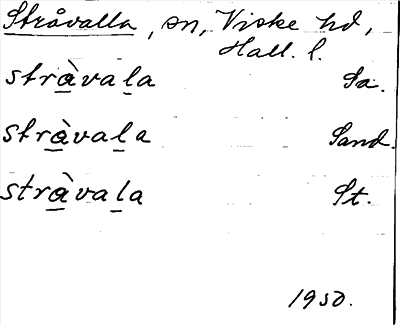 Stråvalla, sn, Viske hd,
Hall. l.
stràvala Sa.
stràvala Sand.
stràvala St.
1950.